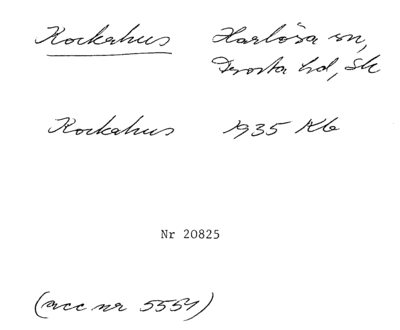 Kockahus Harlösa sn,
Frosta hd, Sk
Kockahus 1935 Kb
Nr 20825
(acc nr 5551)